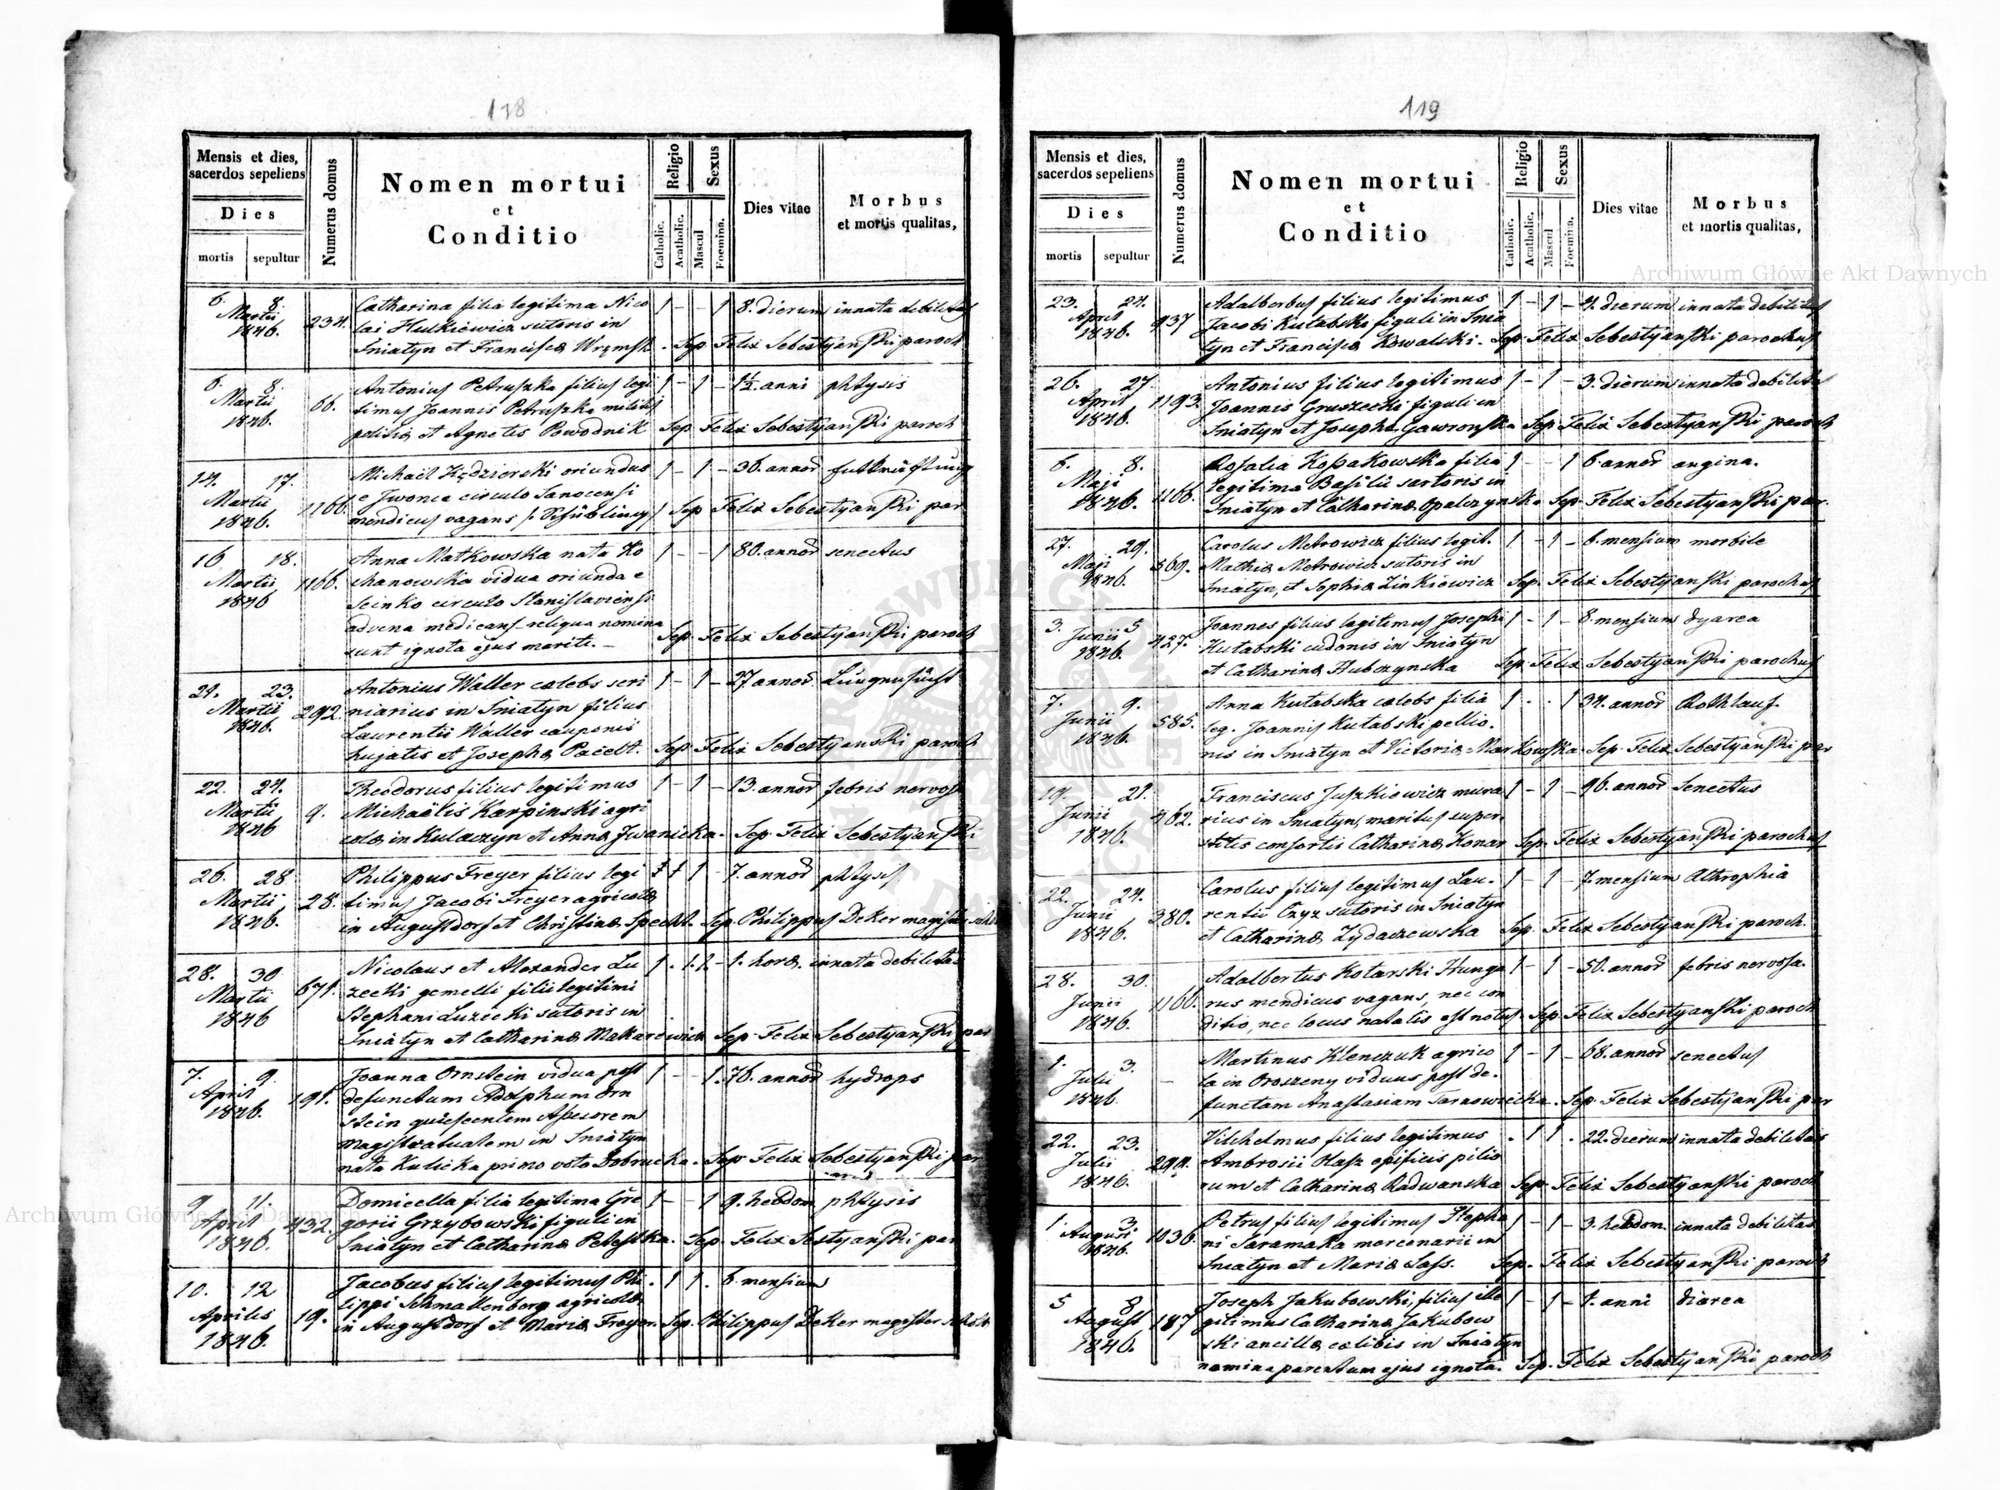 118
Mensis et dies, sacerdos sepeliens
Dies
mortis sepultur
Numerus domus
Nomen mortui
et
Conditio
Religio
Catholic. Acatholic.
Sexus
Mascul Foemina.
Dies vitae
Morbus
et mortis qualitas,
6. 8. Martii 1846. 234. Catharina filia legitima Nico 1 - - 1 8. dierum innata debilitas
lai Hulkiewicz sutoris in
Sniatyn et Francisca - Sep Felix Sebestyanski paroch
6. 8. Martii 1846. 66. Antonius Petruszka filius legi 1 - 1 - 1½ anni phtysis
timus Joannis Petruszka militis
politia et Agnetis Powodnik Sep Felix Sebestyanski paroch
14. 17. Martii 1846. 1166. Michael Kędzierski oriundus 1 - 1 - 36. annor
e Iwonca circulo Sanocensi
mendicus vagans Sep Felix Sebestyanski par
16 18. Martii 1846 1166. Anna Małkowska nata Ko 1 - - 1 80. annor senectus
chanowska vidua oriunda e
circulo Stanislaviensi
advena medicans reliqua nomina
sunt ignota ejus mariti. - Sep Felix Sebestyanski paroch
21. 23. Martii 1846. 292. Antonius Waller caelebs scri 1 - 1 - 27 annor Lungensucht
niarius in Sniatyn filius
Laurentii Waller cauponis
hujatis et Josepha Sep Felix Sebestyanski paroch
22. 24. Martii 1846 9. Theodorus filius legitimus 1 - 1 - 13. annor febris nervosa
Michaëlis Karpinski agri
cola in Kulaczyn et Anna Iwanicka. Sep Felix Sebestyanski
26. 28 Martii 1846. 28. Philippus Freyer filius legi 1 1 - 7. annor phtysis
timus Jacobi Freyer agricola
in Augustdorf et Christina Specht. Sep Philippus Deker magister
28. 30 Martii 1846 671. Nicolaus et Alexander Lu 1 1. hora. innata debilitas
zecki gemelli filii legitimi
Stephani Luzecki sutoris in
Sniatyn et Catharina Makarewicz Sep Felix Sebestyanski par
7. 9. April 1846. 191. Joanna Ornstein vidua post 1 - - 1. 76. annor hydrops
defunctum Adolphum Orn
stein quiescentem Assesorem
Magistratualem in Sniatyn
nata Kulicka primo voto Dobrucka. Sep Felix Sebestyanski par
9 11. April 1846. 432. Domicella filia legitima Gre 1 - - 1 9. hebdom phtysis
gorii Grzybowski figuli in
Sniatyn et Catharina Sep. Felix Sestyanski par
10. 12 Aprilis 1846. 19. Jacobus filius legitimus Phi . 1 1 . 6. mensium
lippi Schmallenberg agricola
in Augustdorf et Maria Freyer. Sep. Philippus Deker magister
119
Mensis et dies, sacerdos sepeliens
Dies
mortis sepultur
Numerus domus
Nomen mortui
et
Conditio
Religio
Catholic. Acatholic.
Sexus
Mascul Foemina.
Dies vitae
Morbus
et mortis qualitas,
23. 24. April 1846. 437 Adalbertus filius legitimus 1 - 1 - 4. dierum innata debilitas
Jacobi Kutabski figuli in Snia
tyn et Francisca Kowalski. Sep Felix Sebestyanski parochus
26. 27. April 1846. 1193. Antonius filius legitimus 1 - 1 - 3. dierum innata debilitas
Joannis Gruszecki figuli in
Sniatyn et Josepha Gawronska Sep Felix Sebestyanski paroch
6. 8. Maji 1846. 1166. Rosalia Kopakowska filia 1 - - 1 6. annor angina.
legitima Basilii sartoris in
Sniatyn et Catharina Opalczynska. Sep Felix Sebestyanski par.
27. 29. Maji 1846. 569. Carolus Metrowicz filius legit. 1 - 1 - 6. mensium morbile
Mathia Metrowicz sutoris in
Sniatyn, et Sophia Zinkiewicz Sep. Felix Sebestyanski parochus
3. 5 Junii 1846. 427. Joannes filius legitimus Josephi 1 - 1 - 8. mensium dyarea
Kutabski cudonis in Sniatyn
et Catharina Hubczynska Sep Felix Sebestyanski parochus
7. 9. Junii 1846. 585. Anna Kutabska caelebs filia 1 . . 1 34. annor Rothlauf.
leg. Joannis Kutabski pellio.
nis in Sniatyn et Victoria Markowska. Sep. Felix Sebestyanski par
19. 21. Junii 1846. 462. Franciscus Juszkiewicz mura 1 - 1 - 96. annor Senectus
rius in Sniatyn, maritus super.
stitis consortis Catharina Konar Sep. Felix Sebestyanski parochus
22. 24. Junii 1846. 380. Carolus filius legitimus Lau. 1 - 1 - 7. mensium Athrophia
rentii Czyz sutoris in Sniatyn
et Catharina Zydaczewska Sep. Felix Sebestyanski paroch.
28. 30. Junii 1846. 1166. Adalbertus Kotarski Hunga 1 - 1 - 50. annor febris nervosa.
rus mendicus vagans, nec con
ditio, nec locus natalis est notus Sep Felix Sebestyanski paroch
1. 3. Julii 1846 - Martinus Klenczuk agrico 1 - 1 - 68. annor senectus
la in Oroszeny viduus post de.
functam Anastasiam Tarnowiecka. Sep. Felix Sebestyanski par
22. 23. Julii 1846. 299. Vilhelmus filius legitimus . 1 1 . 22. dierum innata debilitas
Ambrosii Olasz opificis pilio
rum et Catharina Radwanska Sep. Felix Sebestyanski paroch
1. 3. August 1846. 1036. Petrus filius legitimus Stepha 1 - 1 - 3. hebdom innata debilitas
ni Saramaka mercenarii in
Sniatyn et Maria Sass. Sep. Felix Sebestyanski paroch
5 8. August 1846. 187 Joseph Jakubowski, filius ille 1 - 1 - 1. anni diarea
gitimus Catharina Jakubow
ski ancilla caelibis in Sniatyn
nomina parentum ejus ignota. Sep. Felix Sebestyanski paroch
Archiwum Główne Akt Dawnych
Archiwum Główne Akt Dawnych